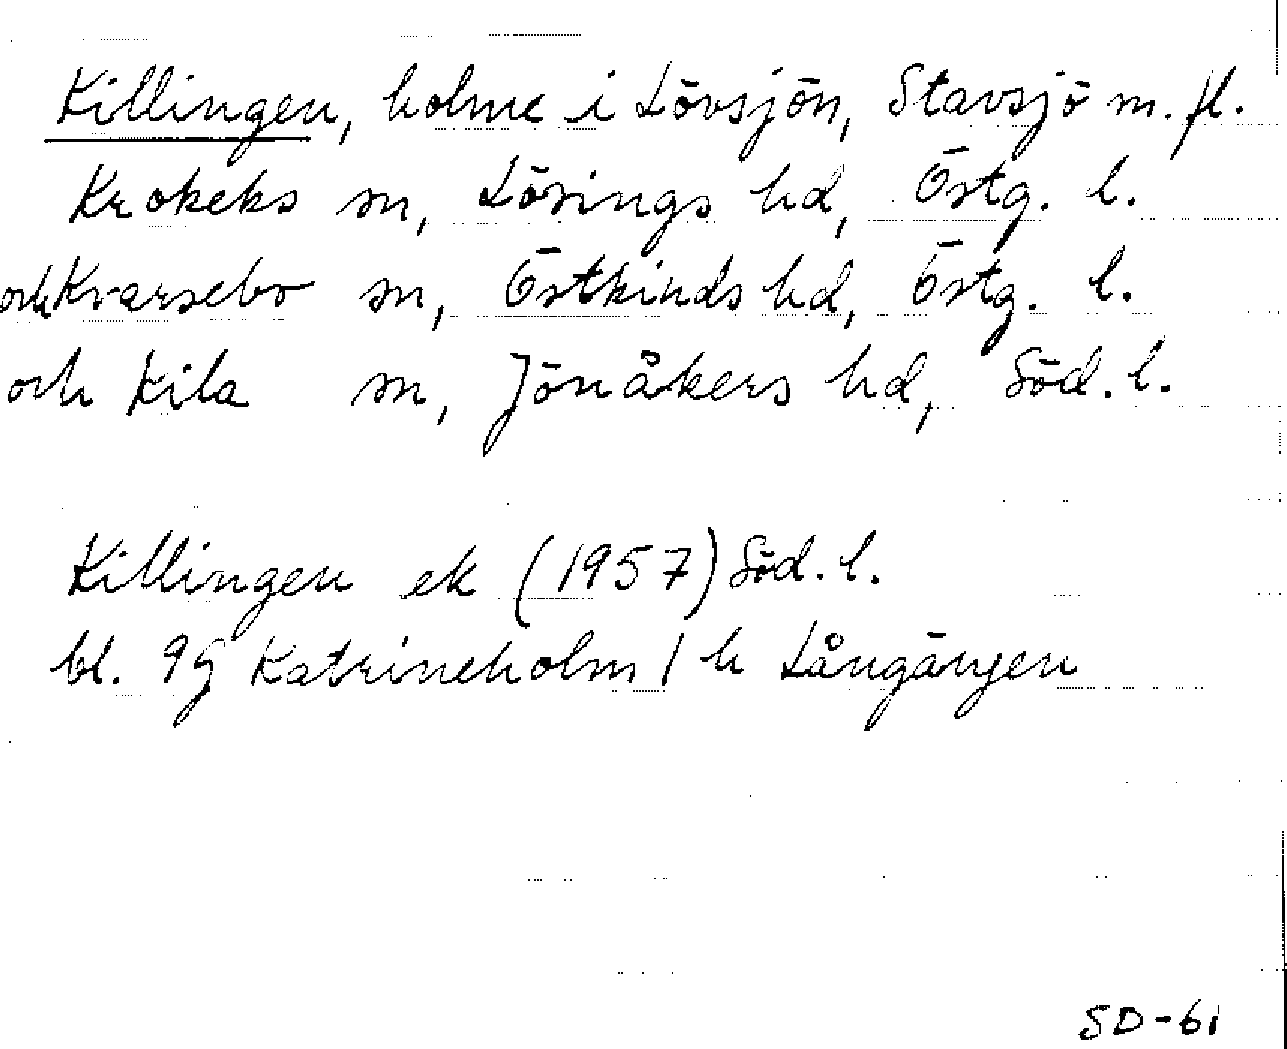 Killingen, holme i Lövsjön, Stavsjö m. fl.
Krokeks sn, Lösings hd, Östg. l.
och Kvarsebo sn, Östkinds hd, Östg. l.
och Kila sn, Jönåkers hd, Söd. l.
Killingen ek (1957) Söd. l.
bl. 9G Katrineholm / h Långängen
SD-61